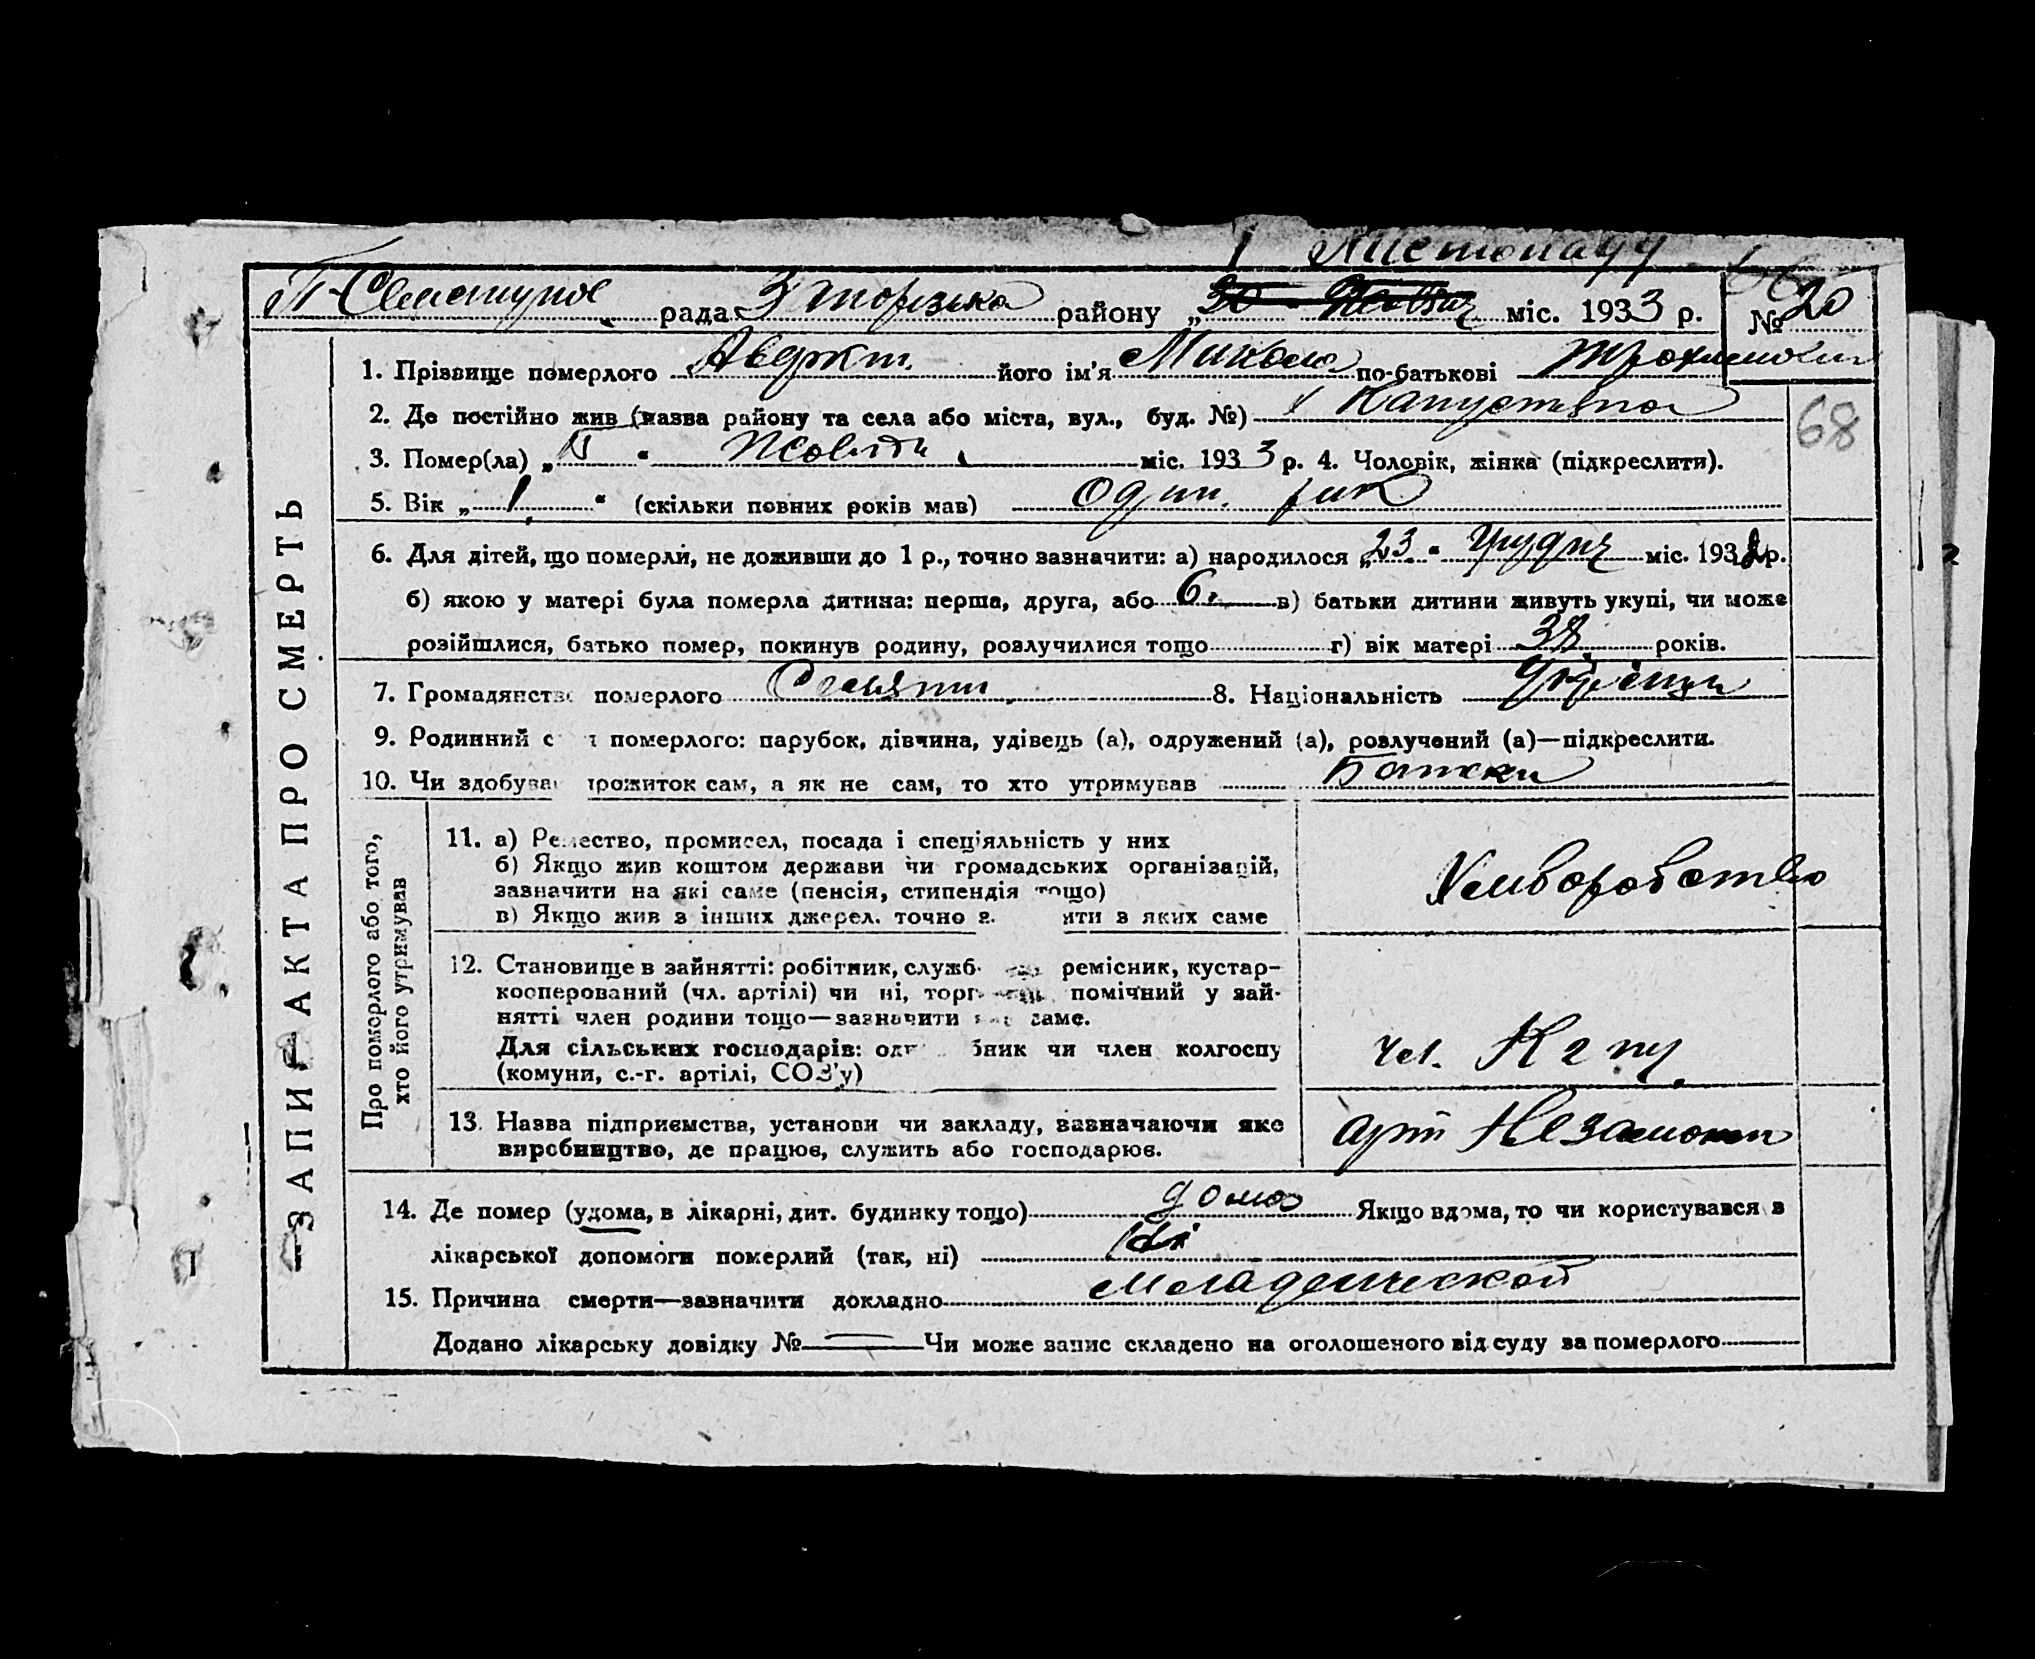 1 Листопаду
рада З торзька району „30 Жовтня міс. 1933 р. № 20
1. Прізвище померлого його ім'я Микола по-батькові
2. Де постійно жив (назва району та села або міста, вул., буд. №) Капустяна
68
3. Помер(ла) „ “ міс. 1933 р. 4. Чоловік, жінка (підкреслити).
5. Вік „1“ (скільки повних років мав) Один рик
6. Для дітей, що померли, не доживши до 1 р., точно зазначити: а) народилося „23“ Грудня міс. 1932 р.
б) якою у матері була померла дитина: перша, друга, або 6 в) батьки дитини живуть укупі, чи може
розійшлися, батько помер, покинув родину, розлучилися тощо г) вік матері 38 років.
7. Громадянство померлого Селянин 8. Національність
9. Родинний с т померлого: парубок, дівчина, удівець (а), одружений (а), розлучений (а)—підкреслити.
10. Чи здобував прожиток сам, а як не сам, то хто утримував Батьки
ЗАПИС АКТА ПРО СМЕРТЬ
Про померлого або того,
хто його утримував
11. а) Ремество, промисел, посада і спеціяльність у них
б) Якщо жив коштом держави чи громадських організацій,
зазначити на які саме (пенсія, стипендія тощо)
в) Якщо жив з інших джерел. точно з ити з яких саме
Хлиборобство
12. Становище в зайнятті: робітник, служб ремісник, кустар-
кооперований (чл. артілі) чи ні, торг помічний у зай-
нятті член родини тощо—зазначити саме.
Для сільських господарів: од бник чи член колгоспу
(комуни, с.-г. артілі, СОЗ'у)
чл.
13. Назва підприємства, установи чи закладу, зазначаючи яке
виробництво, де працює, служить або господарює.
арт Незаможн
14. Де помер (удома, в лікарні, дит. будинку тощо) дома Якщо вдома, то чи користувався з
лікарської допомоги померлий (так, ні) Ні
15. Причина смерти—зазначити докладно Младенческой
Додано лікарську довідку № — Чи може запис складено на оголошеного від суду за померлого